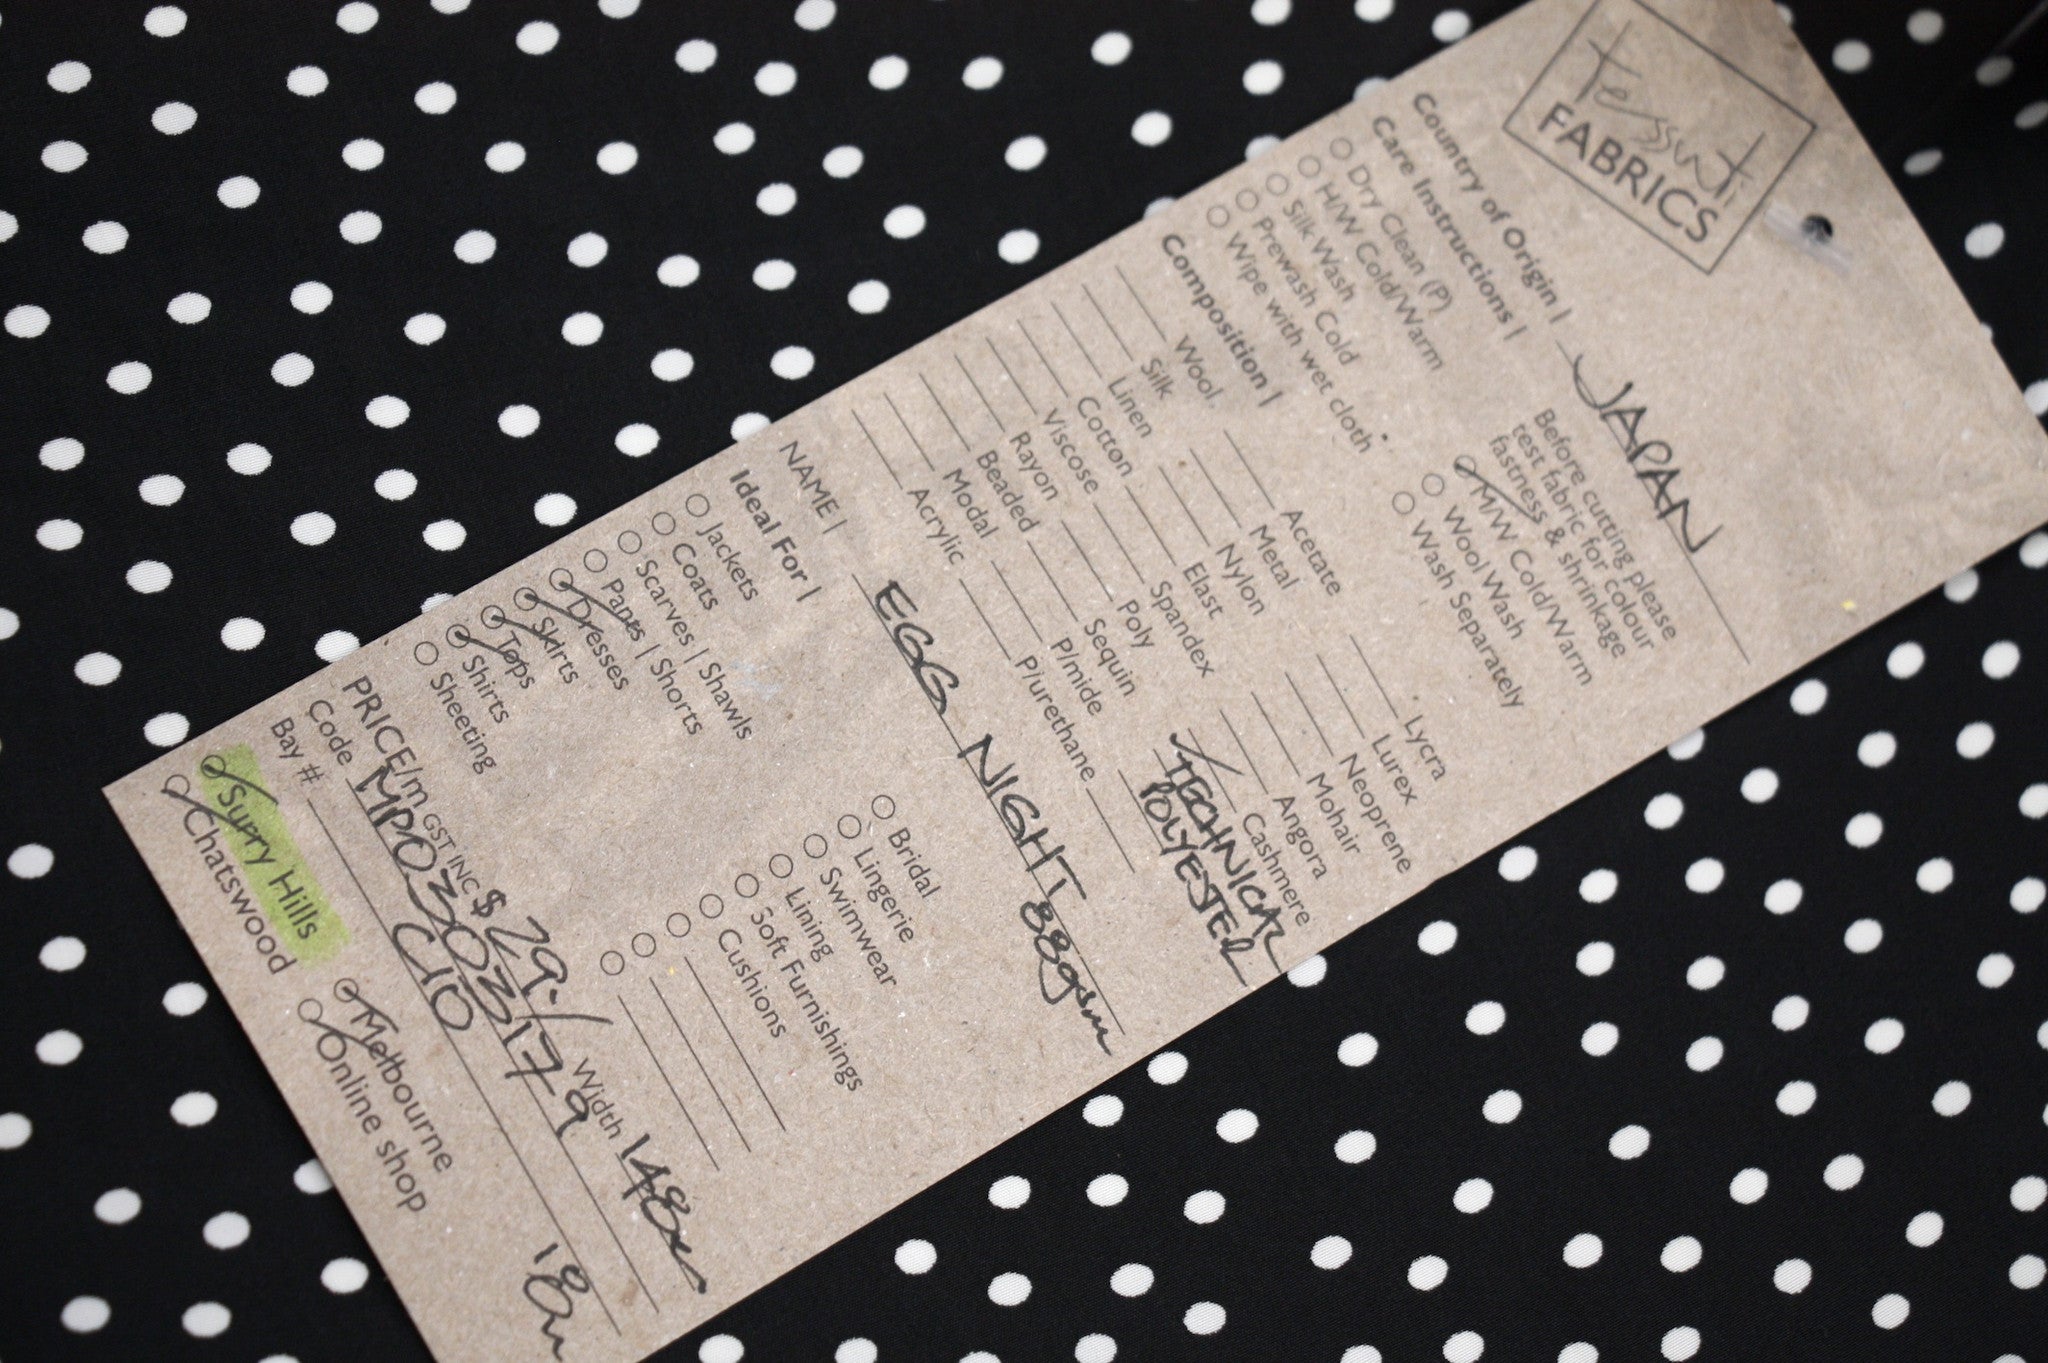 tessuti
FABRICS
Country of Origin | JAPAN
Care Instructions |
Before cutting please
test fabric for colour
fastness & shrinkage
Dry Clean (P)
H/W Cold/Warm
Silk Wash
Prewash Cold
Wipe with wet cloth
M/W Cold/Warm
Wool Wash
Wash Separately
Composition |
Wool
Silk
Linen
Cotton
Viscose
Rayon
Beaded
Modal
Acrylic
Acetate
Metal
Nylon
Elast
Spandex
Poly
Sequin
P/mide
P/urethane
Lycra
Lurex
Neoprene
Mohair
Angora
Cashmere
TECHNICAL
POLYESTER
NAME | EGG NIGHT 88gsm
Ideal For |
Jackets
Coats
Scarves | Shawls
Pants | Shorts
Dresses
Skirts
Tops
Shirts
Sheeting
Bridal
Lingerie
Swimwear
Lining
Soft Furnishings
Cushions
PRICE/m GST INC $ 29.-/ Width 148cm
Code MP0303179
Bay # C10 18m
Surry Hills
Chatswood
Melbourne
Online shop